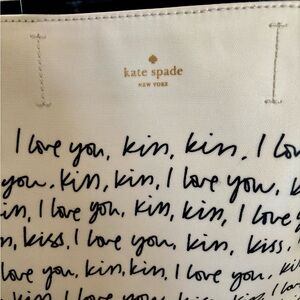 kate spade
NEW YORK
I love you, kiss, kiss, I lov
you, kiss, kiss, I love you, k
iss, kiss, I love you, kiss, I love y
n, kiss, I love you, kiss, kiss,
love you, kiss, kiss, I love you, ki
I love you, kiss, kiss, I lo